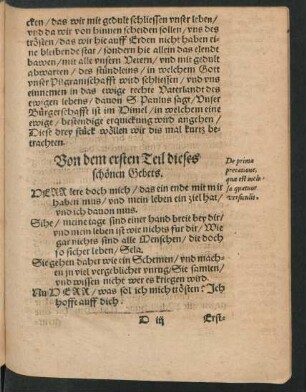 cken / das wir mit gedult schliessen vnser leben /
vnd da wir von hinnen scheiden sollen / vns des
trösten / das wir hie auff Erden nicht haben ei-
ne bleibende stat / sondern hie allein das elendt
bawen / mit alle vnsern Vetern / vnd mit gedult
abwarten / des stündleins / in welchem Gott
vnser Pilgramschafft wird schliessen / vnd vns
einnemen in das ewige rechte Vaterlandt des
ewigen lebens / dauon S. Paulus sagt / Vnser
Bürgerschafft ist im Himel / in welchem eine
ewige / bestendige erquickung wird angehen /
Diese drey stück wöllen wir dis mal kurtz be-
trachten.
Von dem ersten Teil dieses
schönen Gebets.
De prima
precatione,
quæ est in ip-
sa quatuor
versiculis.
HERR lere doch mich / das ein ende mit mir
haben mus / vnd mein leben ein ziel hat /
vnd ich dauon mus.
Sihe / meine tage sind einer hand breit bey dir /
vnd mein leben ist wie nichts fur dir / Wie
gar nichts sind alle Menschen / die doch
so sicher leben / Sela,
Sie gehen daher wie ein Schemen / vnd mach-
en jn viel vergeblicher vnrug / Sie samlen /
vnd wissen nicht wer es kriegen wird.
Nu HERR / was sol ich mich trösten? Ich
hoffe auff dich.
D iij
Erst-